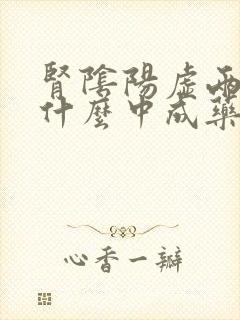 腎陰陽虛兩
什麼中成藥
心香一瓣